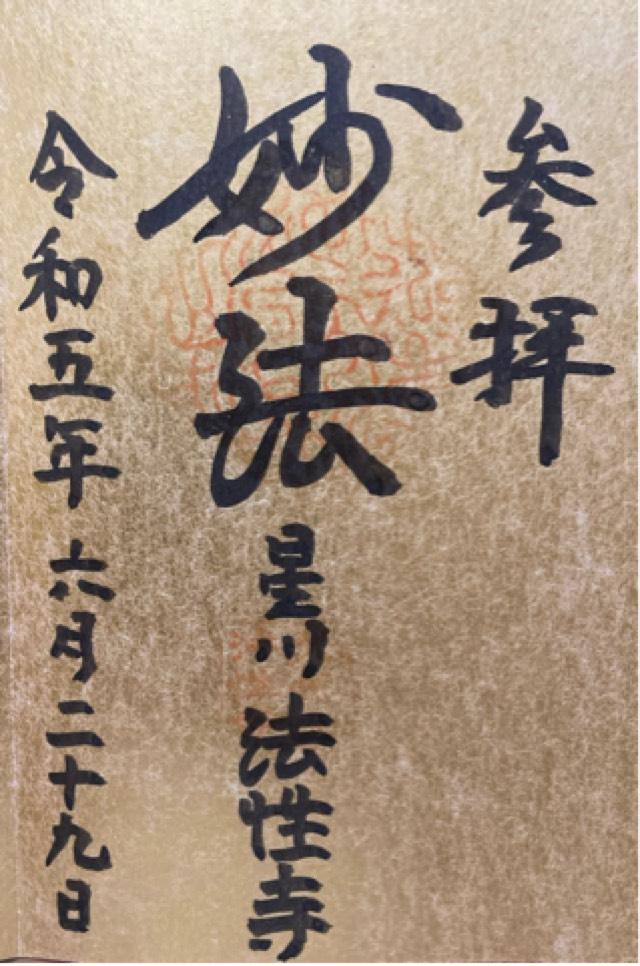 参拝
妙法
星川 法性寺
令和五年 六月二十九日